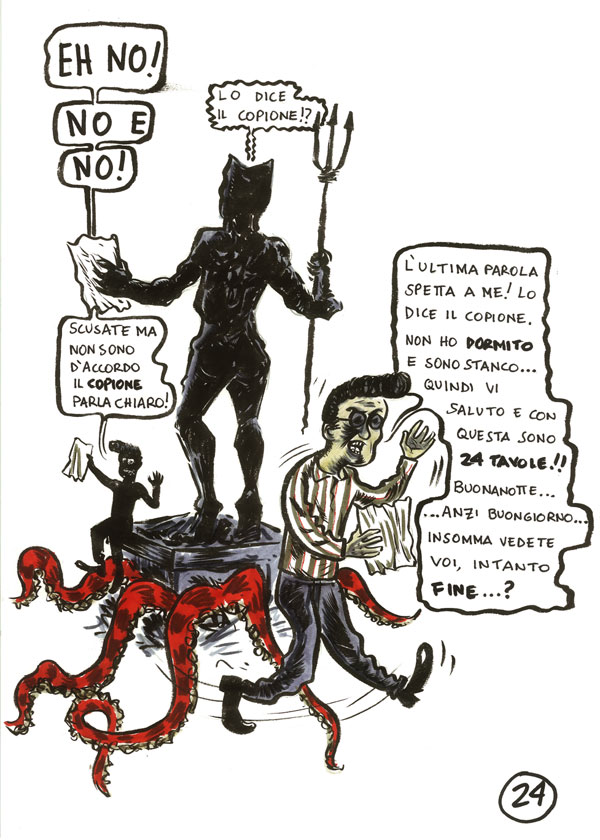 EH NO!
NO E
NO!
LO DICE
IL COPIONE!?
SCUSATE MA
NON SONO
D'ACCORDO
IL COPIONE
PARLA CHIARO!
L'ULTIMA PAROLA
SPETTA A ME! LO
DICE IL COPIONE.
NON HO DORMITO
E SONO STANCO...
QUINDI VI
SALUTO E CON
QUESTA SONO
24 TAVOLE!!
BUONANOTTE...
...ANZI BUONGIORNO...
INSOMMA VEDETE
VOI, INTANTO
FINE...?
24